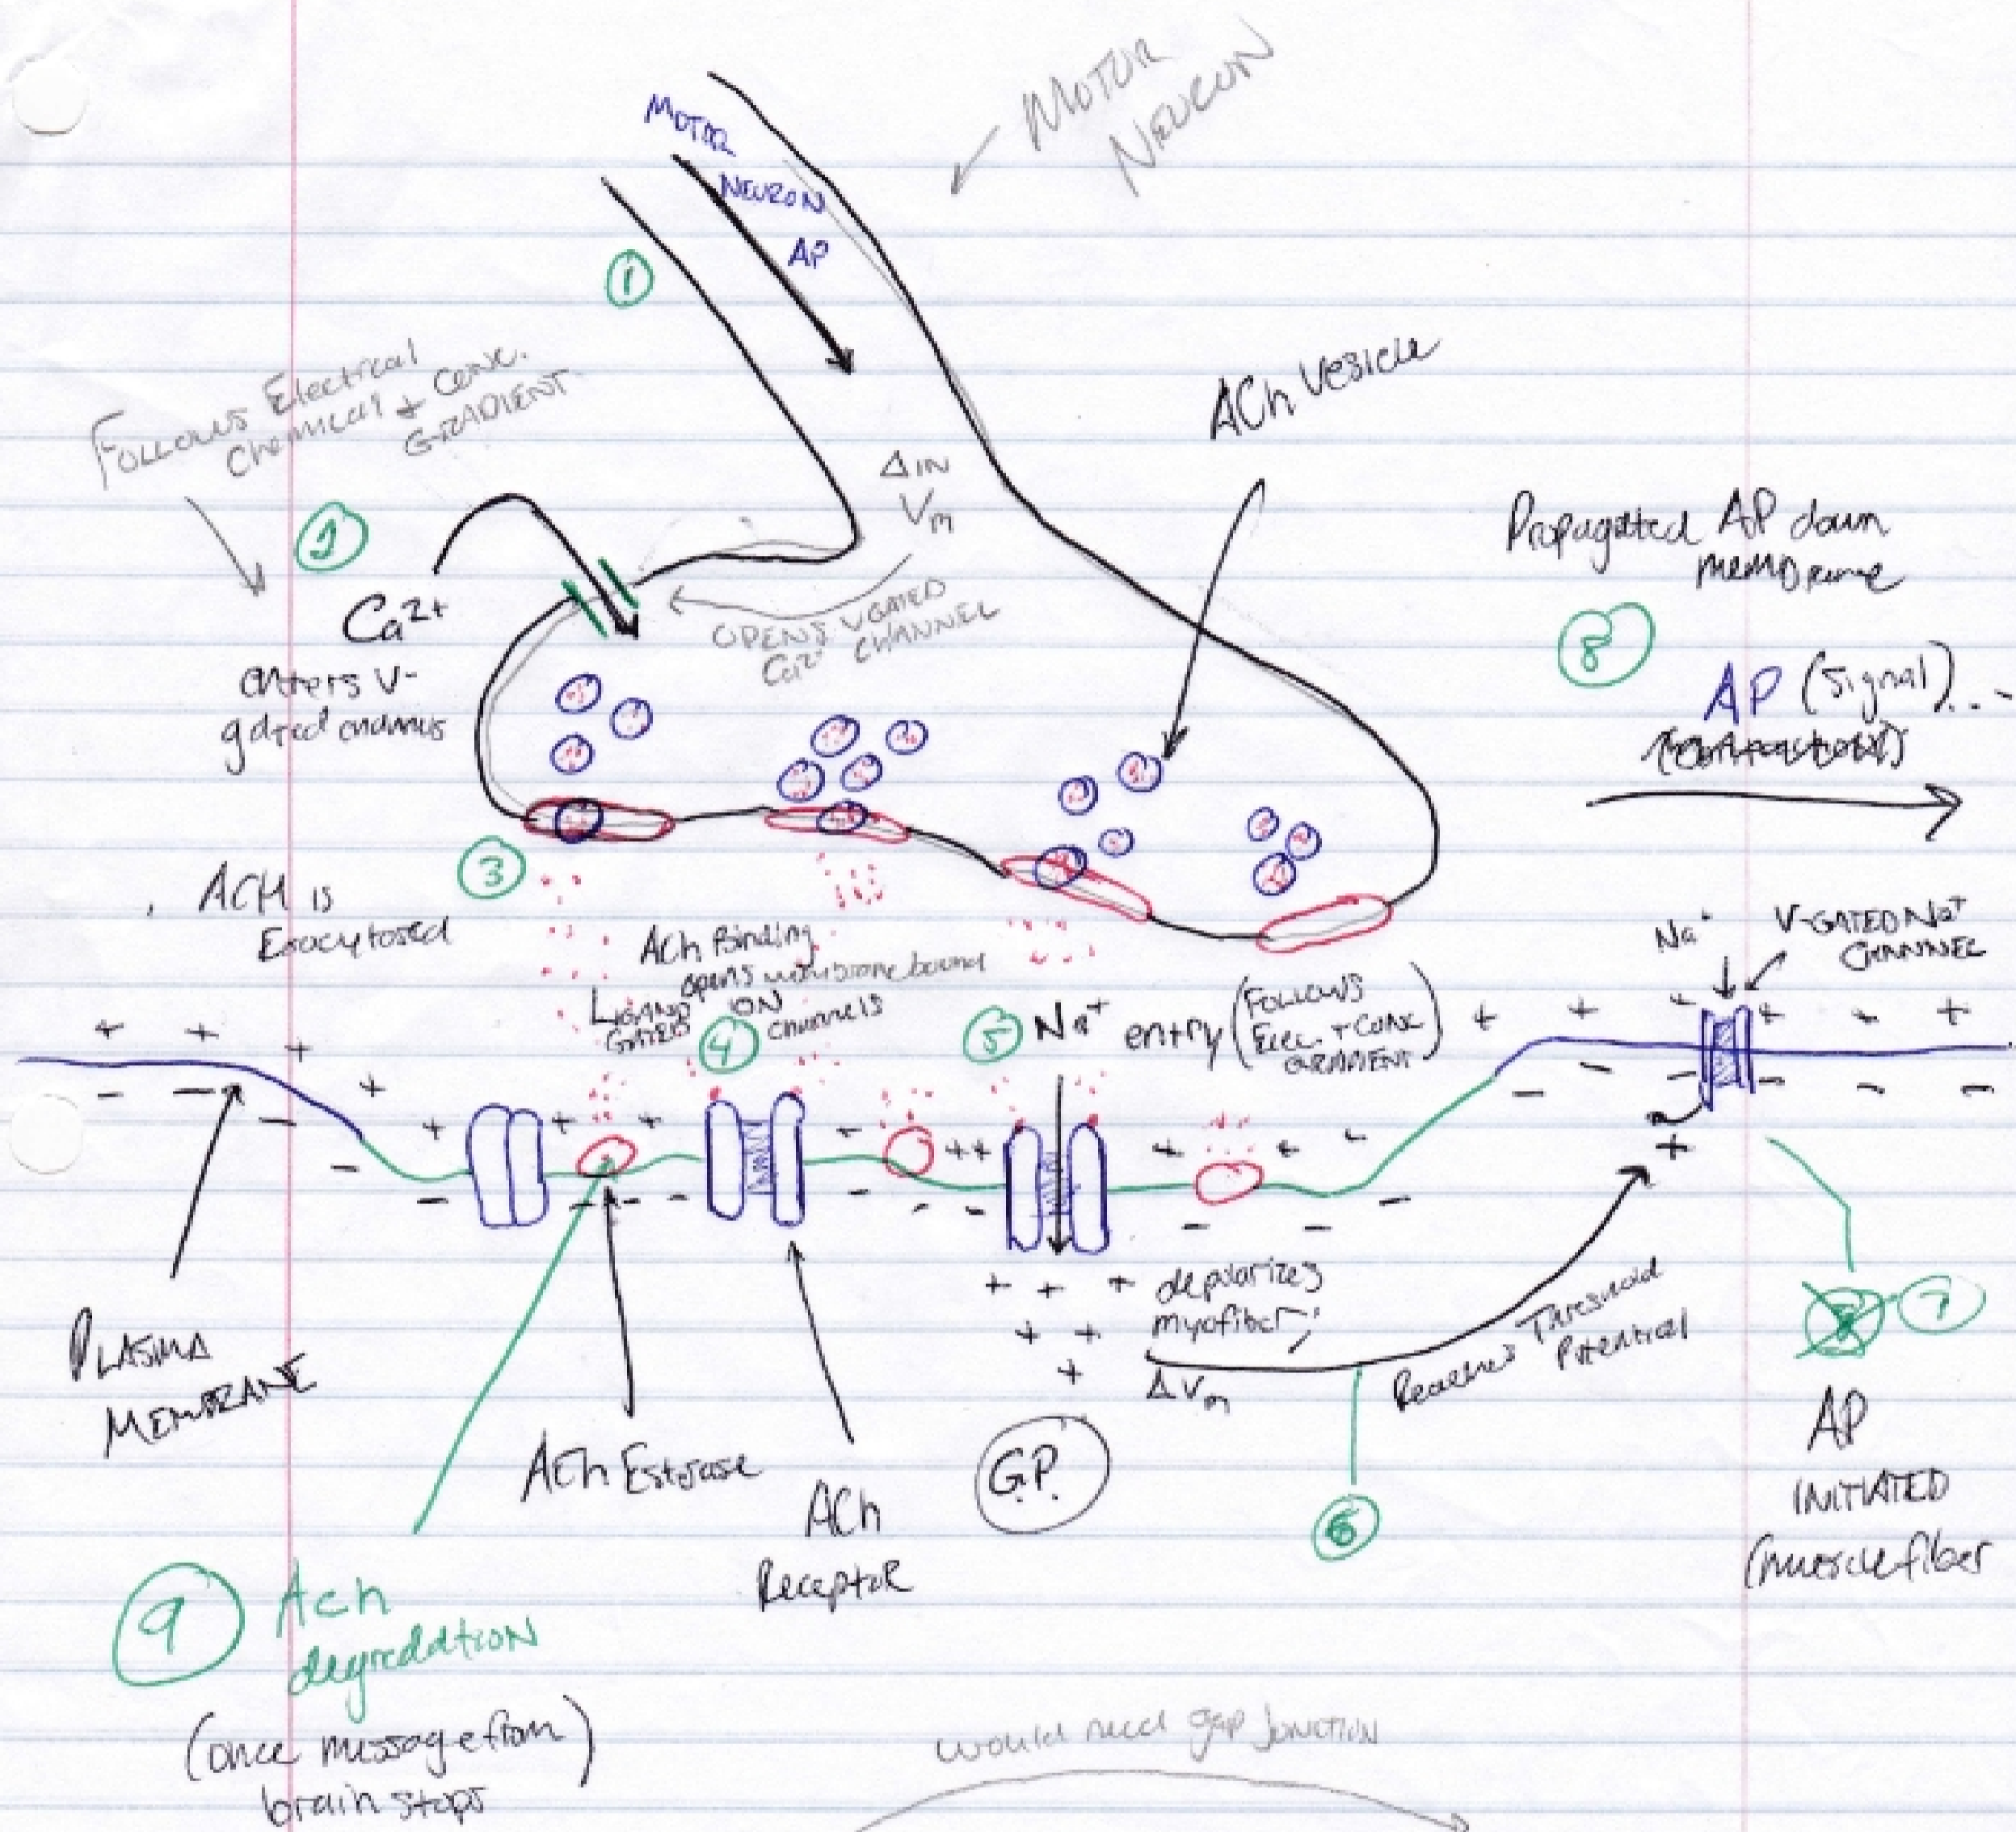 MOTOR
NEURON
MOTOR
NEURON
AP
1
FOLLOWS Electrical
Chemical + Conc.
GRADIENT
ACh Vesicle
Δ IN
Vm
2
Ca2+
enters v-
gated
OPENS VGATED
Ca2+ CHANNEL
Propagated AP down
membrane
8
AP (signal)...
3
ACH is
Exocytosed
ACh Binding
opens membrane bound
LIGAND ION
GATED channels
4
5 Na+ entry (FOLLOWS
Elec. + CONC
GRADIENT)
Na+
V-GATED Na+
CHANNEL
PLASMA
MEMBRANE
ACh Esterase
ACh
Receptor
depolarizes
myofiber;
ΔVm
G.P.
Reaches Threshold
Potential
6
7
AP
INITIATED
(muscle fiber
9 Ach
degredation
(once message from)
brain stops
would need gap junction